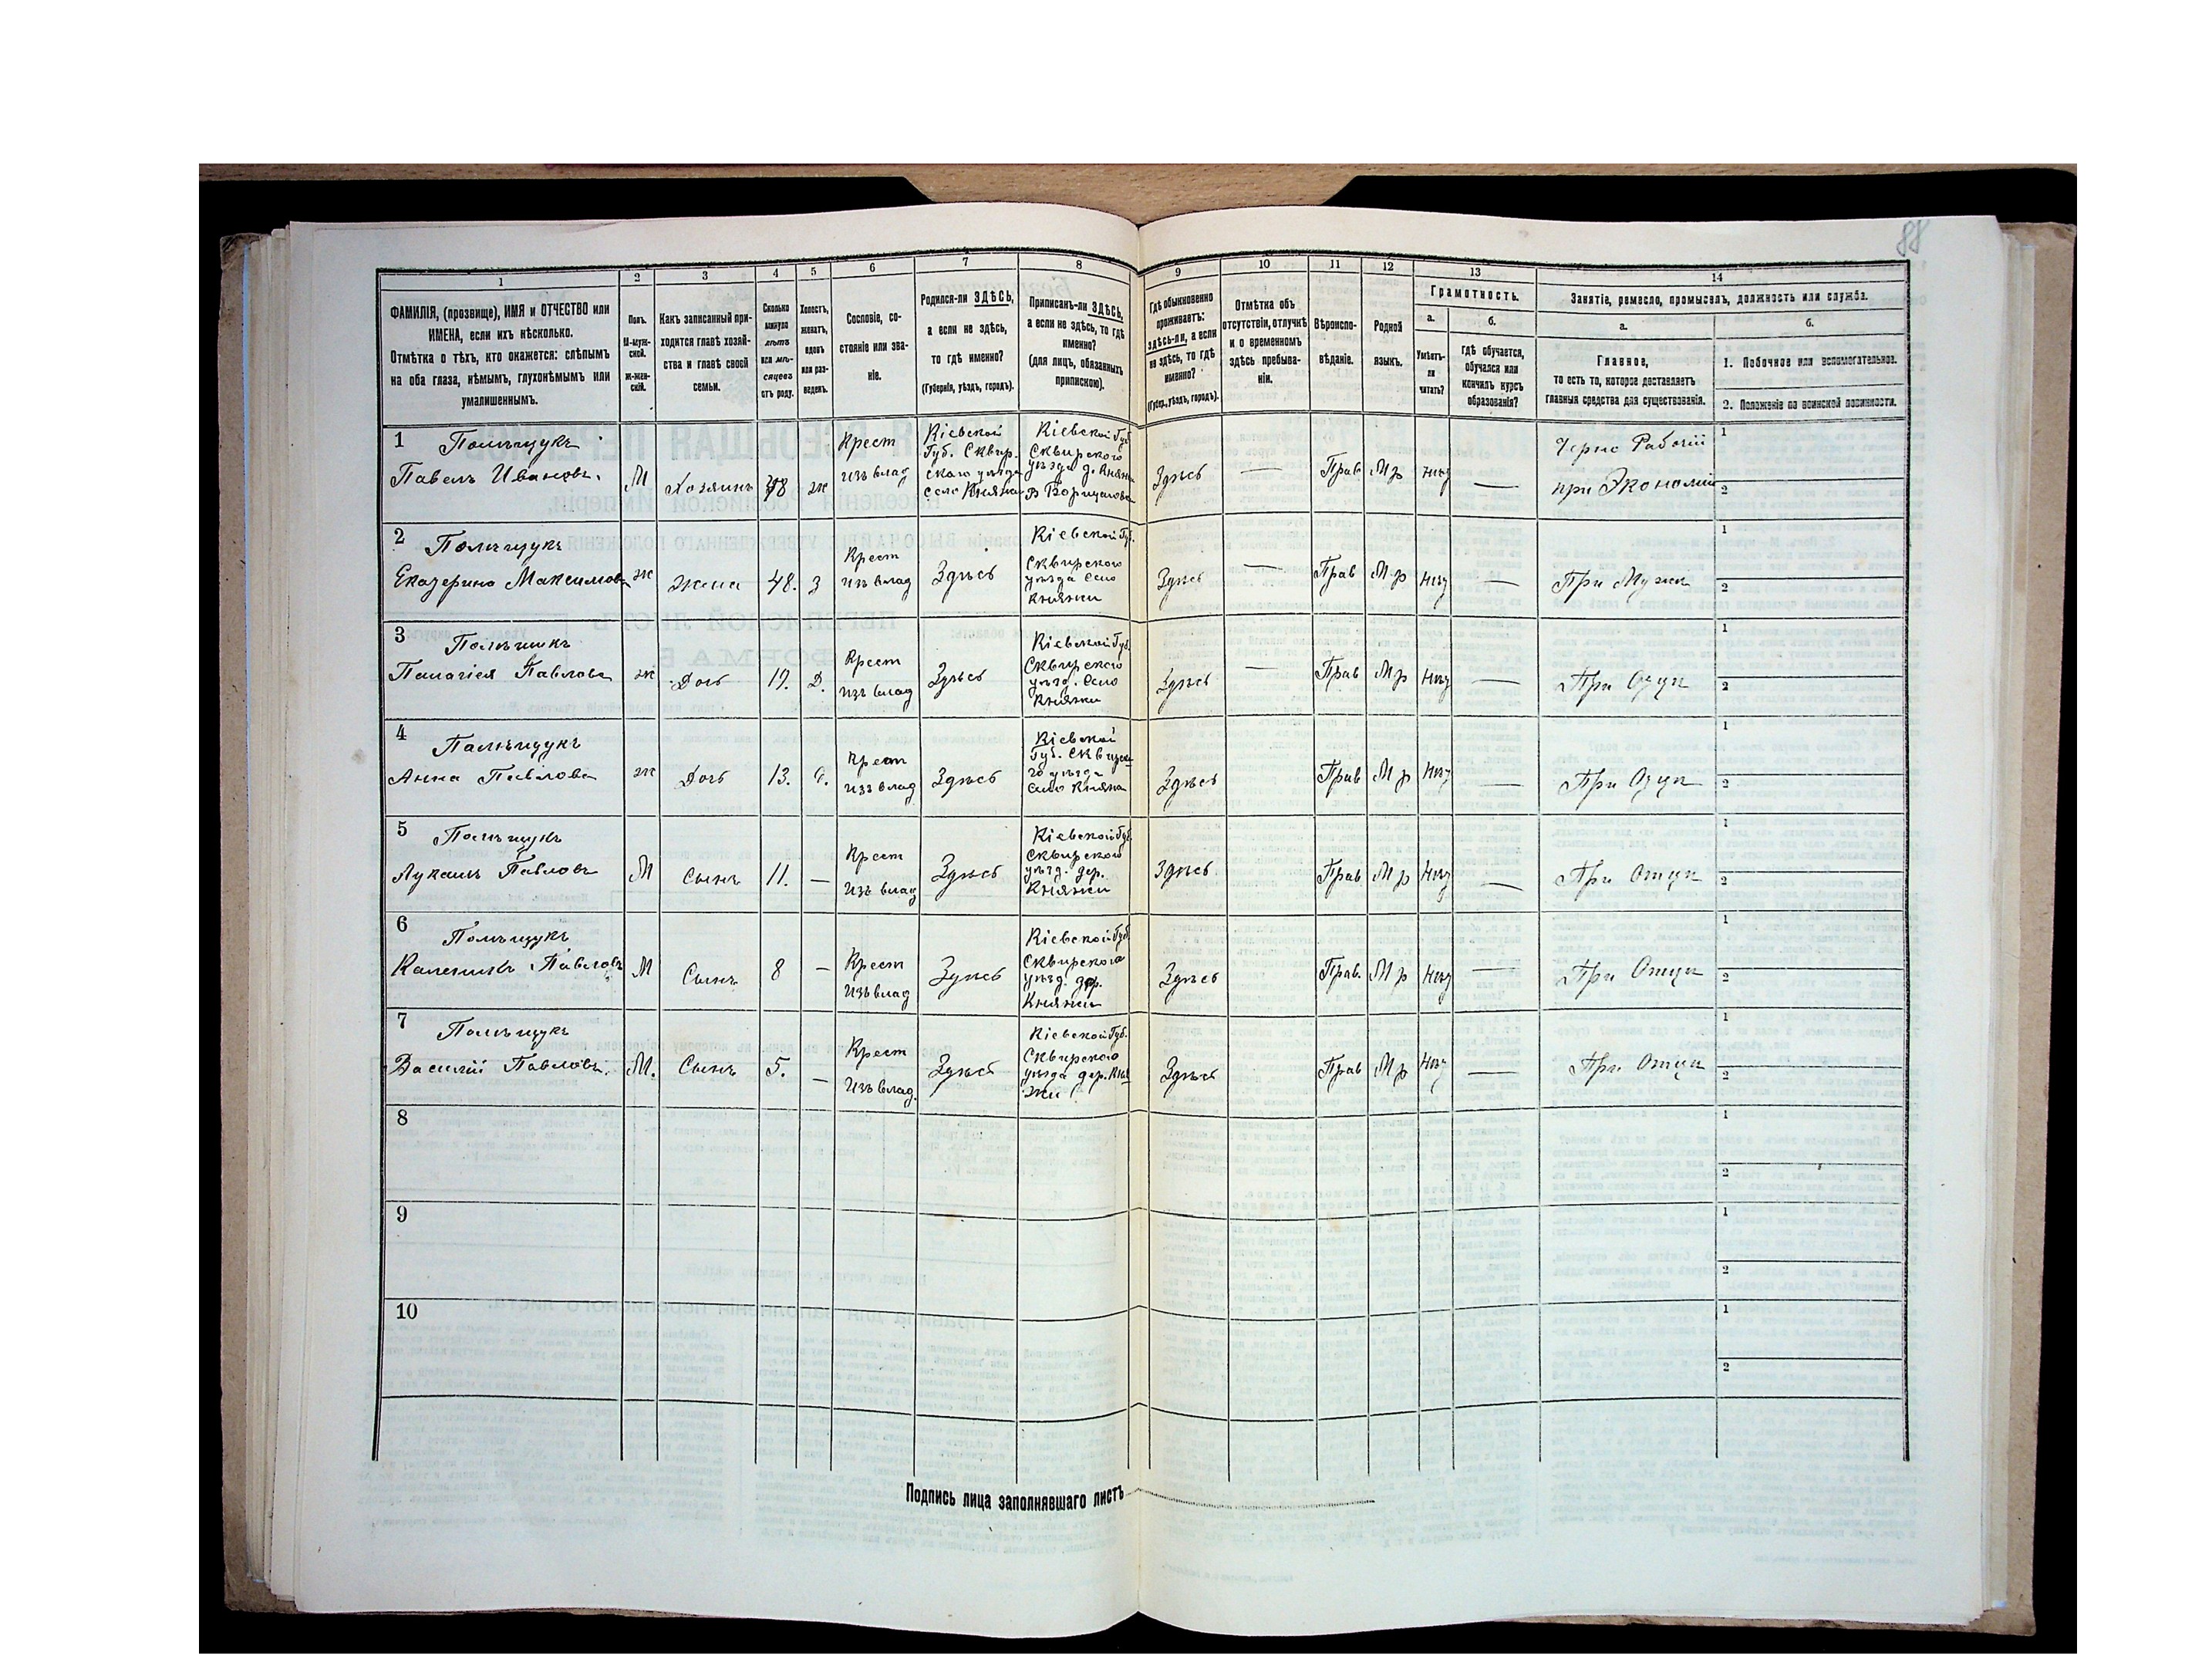 88
1
2
3
4
5
6
7
8
9
10
11
12
13
14
ФАМИЛІЯ, (прозвище), ИМЯ и ОТЧЕСТВО или
ИМЕНА, если ихъ нѣсколько.
Отмѣтка о тѣхъ, кто окажется: слѣпымъ
на оба глаза, нѣмымъ, глухонѣмымъ или
умалишеннымъ.
Полъ.
М-муж-
ской.
Ж-жен-
скій.
Какъ записанный при-
ходится главѣ хозяй-
ства и главѣ своей
семьи.
Сколько
минуло
лѣтъ
или мѣ-
сяцевъ
отъ роду.
Холостъ,
женатъ,
вдовъ
или раз-
веденъ.
Сословіе, со-
стояніе или зва-
ніе.
Родился-ли ЗДѢСЬ,
а если не здѣсь,
то гдѣ именно?
(Губернія, уѣздъ, городъ).
Приписанъ-ли ЗДѢСЬ,
а если не здѣсь, то гдѣ
именно?
(для лицъ, обязанныхъ
припискою).
Гдѣ обыкновенно
проживаетъ:
здѣсь-ли, а если
не здѣсь, то гдѣ
именно?
(Губер., уѣздъ, городъ).
Отмѣтка объ
отсутствіи, отлучкѣ
и о временномъ
здѣсь пребыва-
ніи.
Вѣроиспо-
вѣданіе.
Родной
языкъ.
Грамотность.
а.
Умѣетъ-
ли
читать?
б.
гдѣ обучается,
обучался или
кончилъ курсъ
образованія?
Занятіе, ремесло, промыселъ, должность или служба.
а.
Главное,
то есть то, которое доставляетъ
главныя средства для существованія.
б.
1. Побочное или вспомогательное.
2. Положеніе по воинской повинности.
1
Полѣщукъ
Павелъ Ивановъ.
М
Хозяинъ
ж
Крест
изъ влад
Кіевской
Губ. Сквир.
скаго уѣзда
село Княжи
Кіевской Губ
Сквирского
уѣзда д. Княжи
Здѣсь
—
Прав
Мр
нѣт
—
Черно Рабочій
при Экономіи
1
2
2
Полѣщукъ
Екатерина Максимова
ж
жена
48.
З
Крест
изъ влад
Здѣсь
Кіевской Губ.
Сквирского
уѣзда село
Княжки
Здѣсь
—
Прав
Мр
нѣт
—
При Мужи
1
2
3
Полѣщукъ
Палагіея Павлова
ж
Дочь
19.
Д.
Крест
изъ влад
Здѣсь
Кіевской Губ.
Сквирского
уѣзд. село
Княжки
Здѣсь
—
Прав
Мр
нѣт
—
При Отци
1
2
4
Полѣщукъ
Анна Павлова
ж
Дочь
13.
д.
Крест
изъ влад
Здѣсь
Кіевской
Губ. Сквирск
го уѣзда
село Княжи
Здѣсь
Прав
Мр
нѣт
—
При Отци
1
2
5
Полѣщукъ
Лукашъ Павловъ
М
Сынъ
11.
—
Крест
изъ влад
Здѣсь
Кіевской Губ.
Сквирского
уѣзд. дер.
Княжки
Здѣсь
Прав
Мр
нѣт
—
При Отци
1
2
6
Полѣщукъ
Каленикъ Павловъ
М
Сынъ
8
—
Крест
изъ влад
Здѣсь
Кіевской Губ.
Сквирского
уѣзд. дер.
Княжки
Здѣсь
Прав.
Мр
нѣт
—
При Отци
1
2
7
Полѣщукъ
Василій Павловъ.
М.
Сынъ
5.
—
Крест
изъ влад.
Здѣсь
Кіевской Губ.
Сквирского
уѣзда дер. Кня
жки
Здѣсь
Прав
Мр
нѣт
—
При Отци
1
2
8
1
2
9
1
2
10
1
2
Подпись лица заполнявшаго листъ